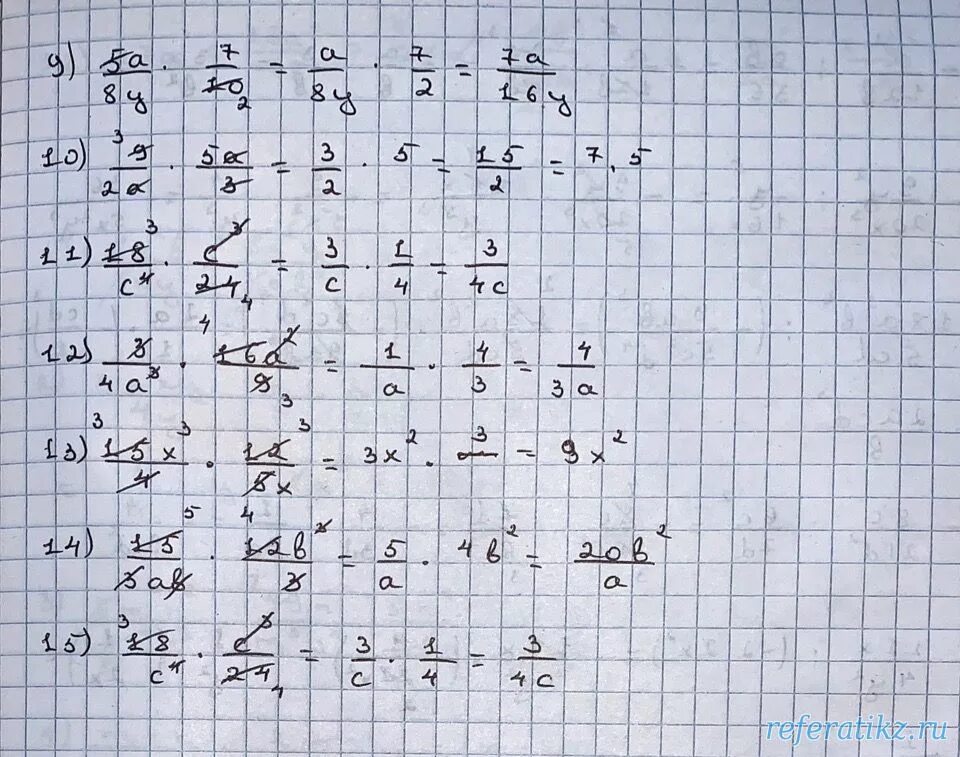 9) 5a/8y · 7/10 2 = a/8y · 7/2 = 7a/16y
10) 3 9/2a · 5a/3 = 3/2 · 5 = 15/2 = 7.5
11) 18 3/c⁴ · c³/24 4 = 3/c · 1/4 = 3/4c
12) 3/4a³ · 4 16a²/9 3 = 1/a · 4/3 = 4/3a
13) 3 15x³/4 · 12 3/5x = 3x² · 3/ = 9x²
14) 15 5/3ab · 4 12b³/3 = 5/a · 4b² = 20b²/a
15) 3 18/c⁴ · c³/24 4 = 3/c · 1/4 = 3/4c
referatikz.ru